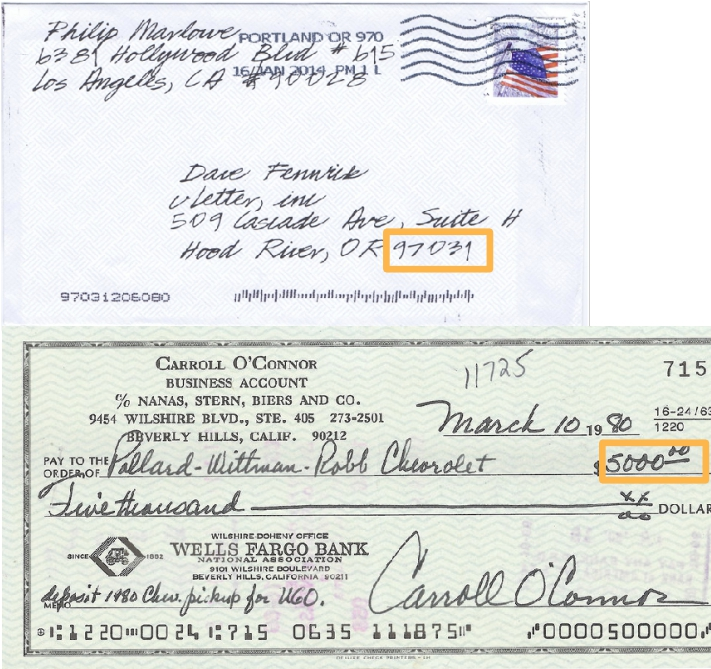 Philip Marlowe
PORTLAND OR 970
6381 Hollywood Blvd # 615
16 JAN 2014 PM 1 L
Los Angeles, CA # 90028
Dave Fennwick
vLetter, inc
509 Cascade Ave, Suite H
Hood River, OR 97031
97031206080
11725
715
CARROLL O'CONNOR
BUSINESS ACCOUNT
% NANAS, STERN, BIERS AND CO.
9454 WILSHIRE BLVD., STE. 405 273-2501
BEVERLY HILLS, CALIF. 90212
March 10 1980
16-24/63
1220
PAY TO THE
ORDER OF Pollard-Wittman-Robb Chevrolet $5000 00
Five thousand xx
00 DOLLAR
WILSHIRE-DOHENY OFFICE
SINCE 1852 WELLS FARGO BANK
NATIONAL ASSOCIATION
9101 WILSHIRE BOULEVARD
BEVERLY HILLS, CALIFORNIA 90211
MEMO deposit 1980 Chev. pickup for UGO.
Carroll O'Connor
1220 0024 715 0635 111875 0000500000